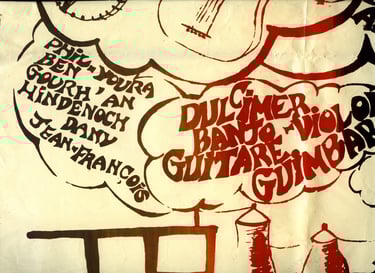 PHIL, YOURA
BEN
GOURH'AN
HINDENOCH
DANY
JEAN-FRANÇOIS
DULCIMER
BANJO-VIOLO
GUITARE
GUIMBAR